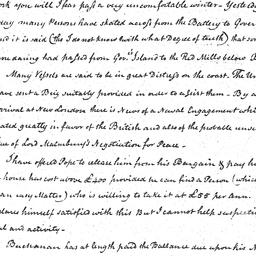 ork you will I fear pass a very uncomfortable winter - Yesterd
day many Persons have skated across from the Battery to Gover
nd it is said (tho I do not know with what Degree of truth) that som
ore daring had passed from Govrs Island to the Red Mills below B
Many Vessels are said to be in great distress on the coast. The Un
have sent a Brig suitably provided in order to assist them - By a
arrival at New London there is News of a Naval Engagement whi
ated greatly in favor of the British and also of the probable unsu
ue of Lord Malmsbury's Negotiation for Peace -
I have offered Pope to release him from his Bargain & pay h
house has cost above £400 provided he can find a Person (whic
an easy Matter) who is willing to take it at £55 per Ann.
clares himself satisfied with this But I cannot help suspecti
al and activity -
Buchanan has at length paid the Ballance due upon his N